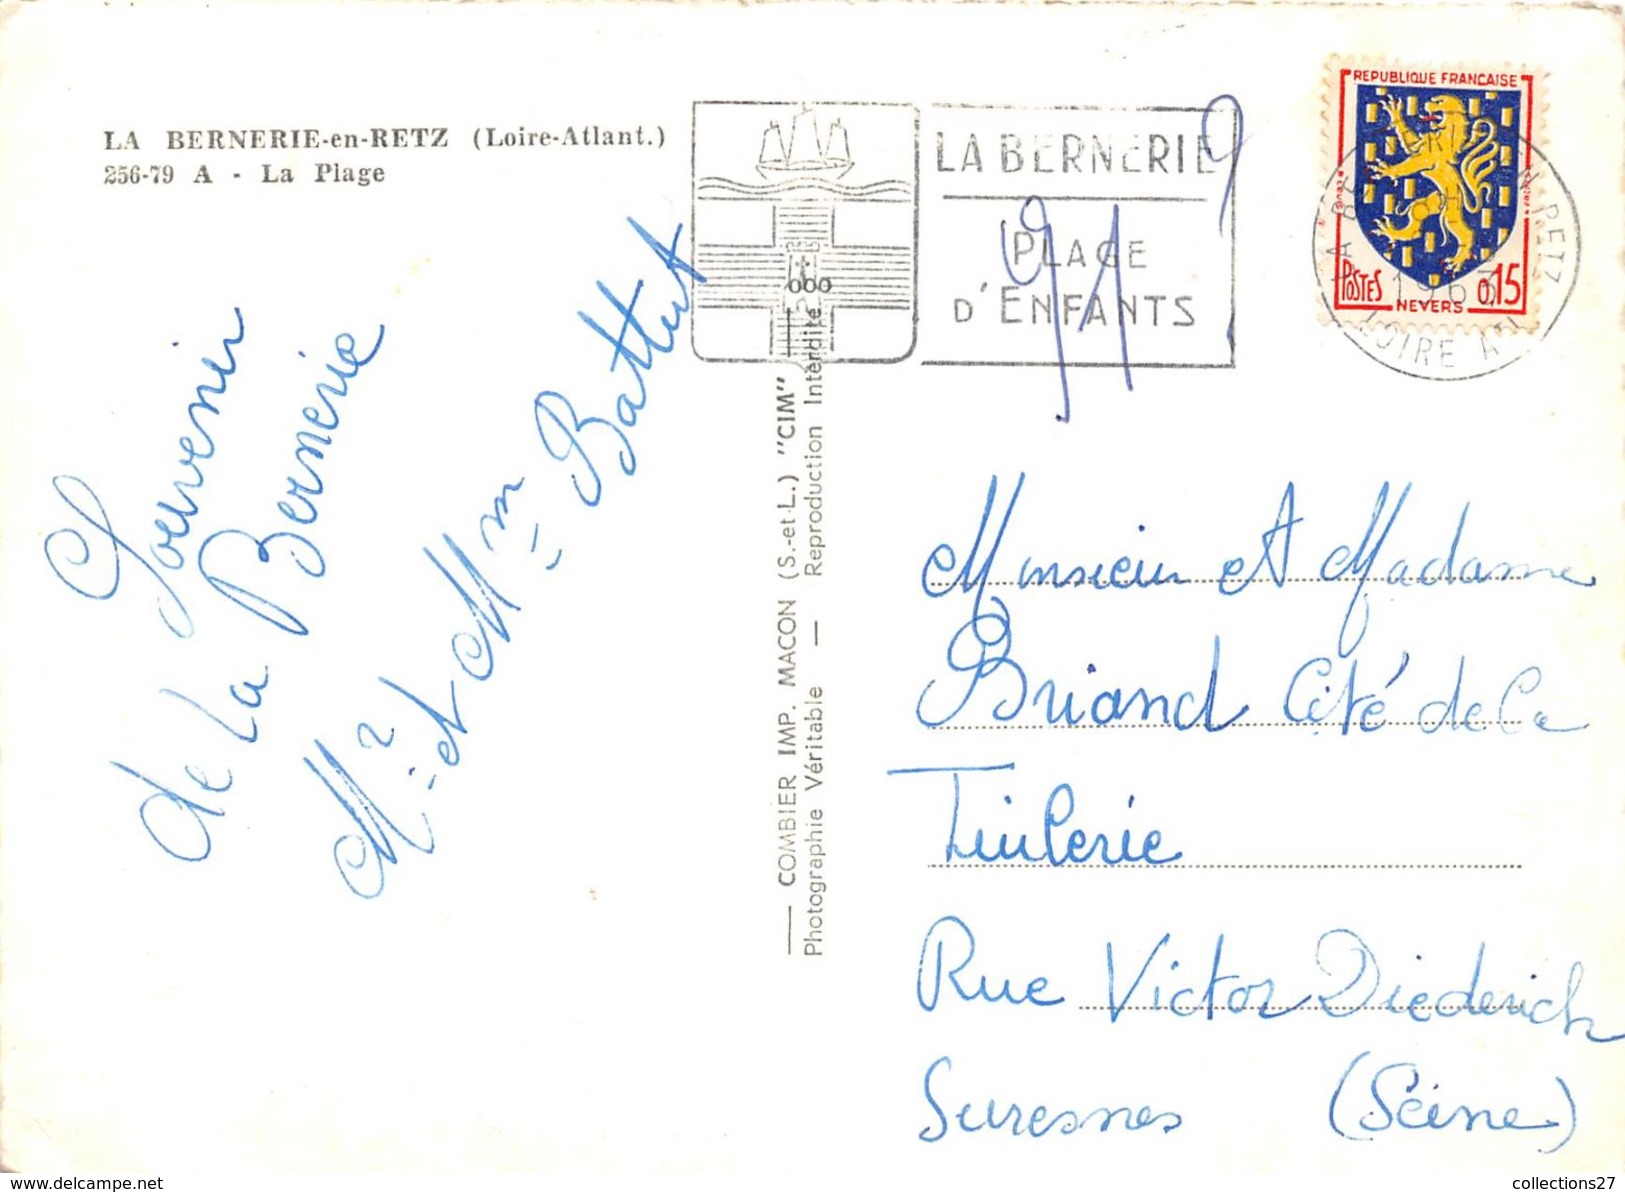 LA BERNERIE-en-RETZ (Loire-Atlant.)
256-79 A - La Plage
LA BERNERIE
PLAGE
D'ENFANTS
REPUBLIQUE FRANÇAISE
POSTES
NEVERS
0,15
EN RETZ
1963
LOIRE ATL
Souvenir
de La Bernerie
Mr et Mm Battut
— COMBIER IMP. MACON (S.-et-L.) "CIM"
Photographie Véritable — Reproduction Interdite
91
Monsieur et Madame
Briand Cité de la
Tuilerie
Rue Victor Diederich
Suresnes (Seine)
www.delcampe.net
collections27